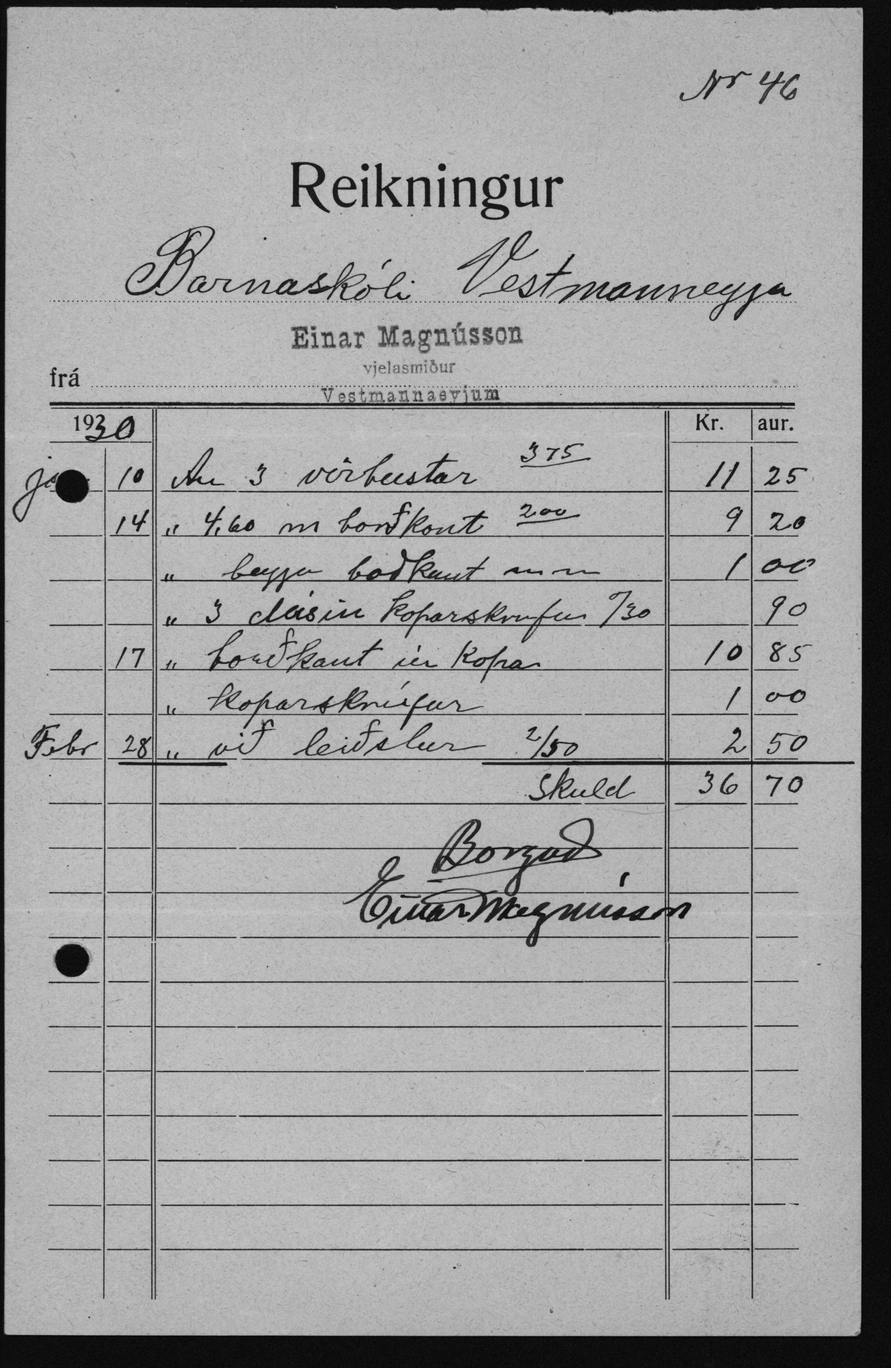 Nr 46
Reikningur
Barnaskóli Vestmanneyja
Einar Magnússon
vjelasmiður
frá
Vestmannaeyjum
1930 Kr. aur.
10 An 3 vírbustar 375 11 25
14 " 4,60 m borðkant 200 9 20
" beygja boðkant 1 00
" 3 dúsin koparskrufur 0/30 90
17 " borðkant úr Kopar 10 85
" koparskrúfur 1 00
Febr 28 " við leiðslur 2/50 2 50
Skuld 36 70
Borgað
Einar Magnússon